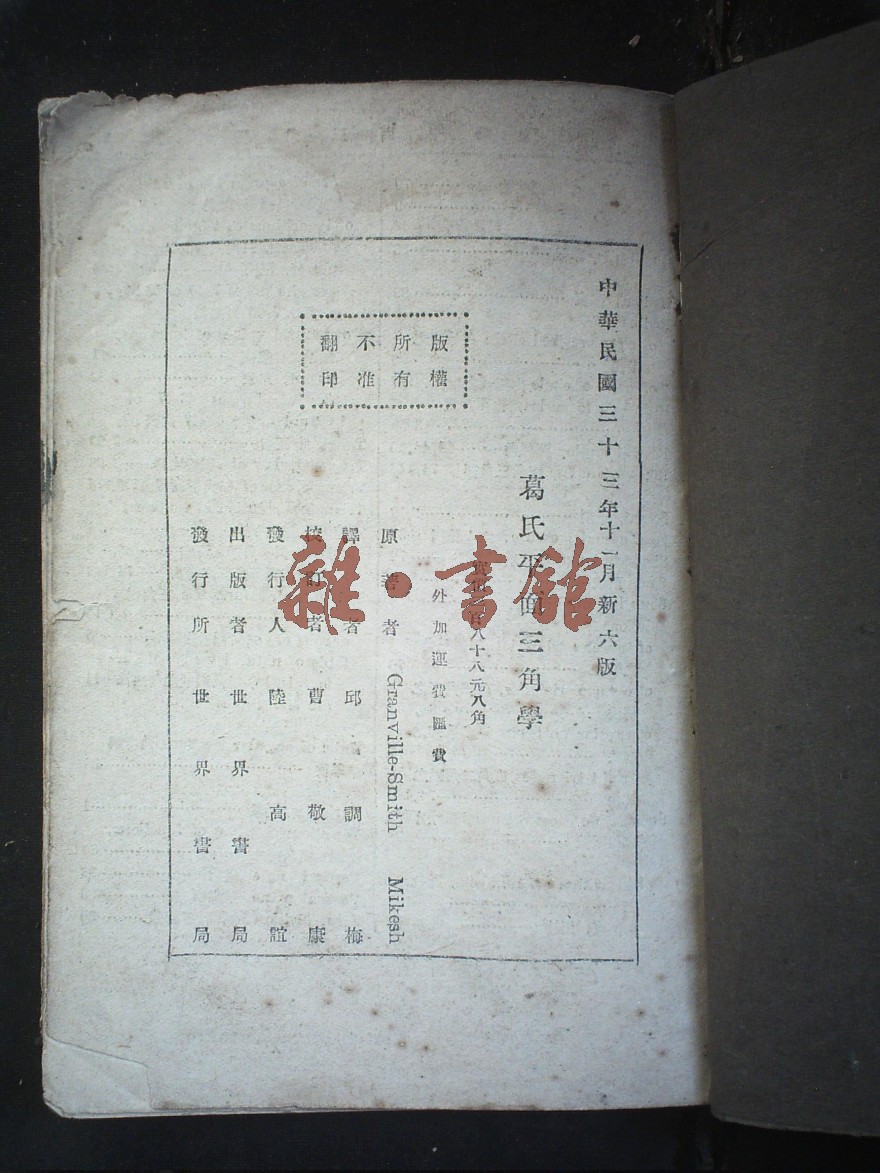 中華民國三十三年十一月新六版
葛氏平面三角學
八十八元八角
外加運費匯費
版權所有
不准翻印
原著者 Granville-Smith Mikesh
譯者 邱調梅
校訂者 曹敬康
發行人 陸高誼
出版者 世界書局
發行所 世界書局
雜·書館